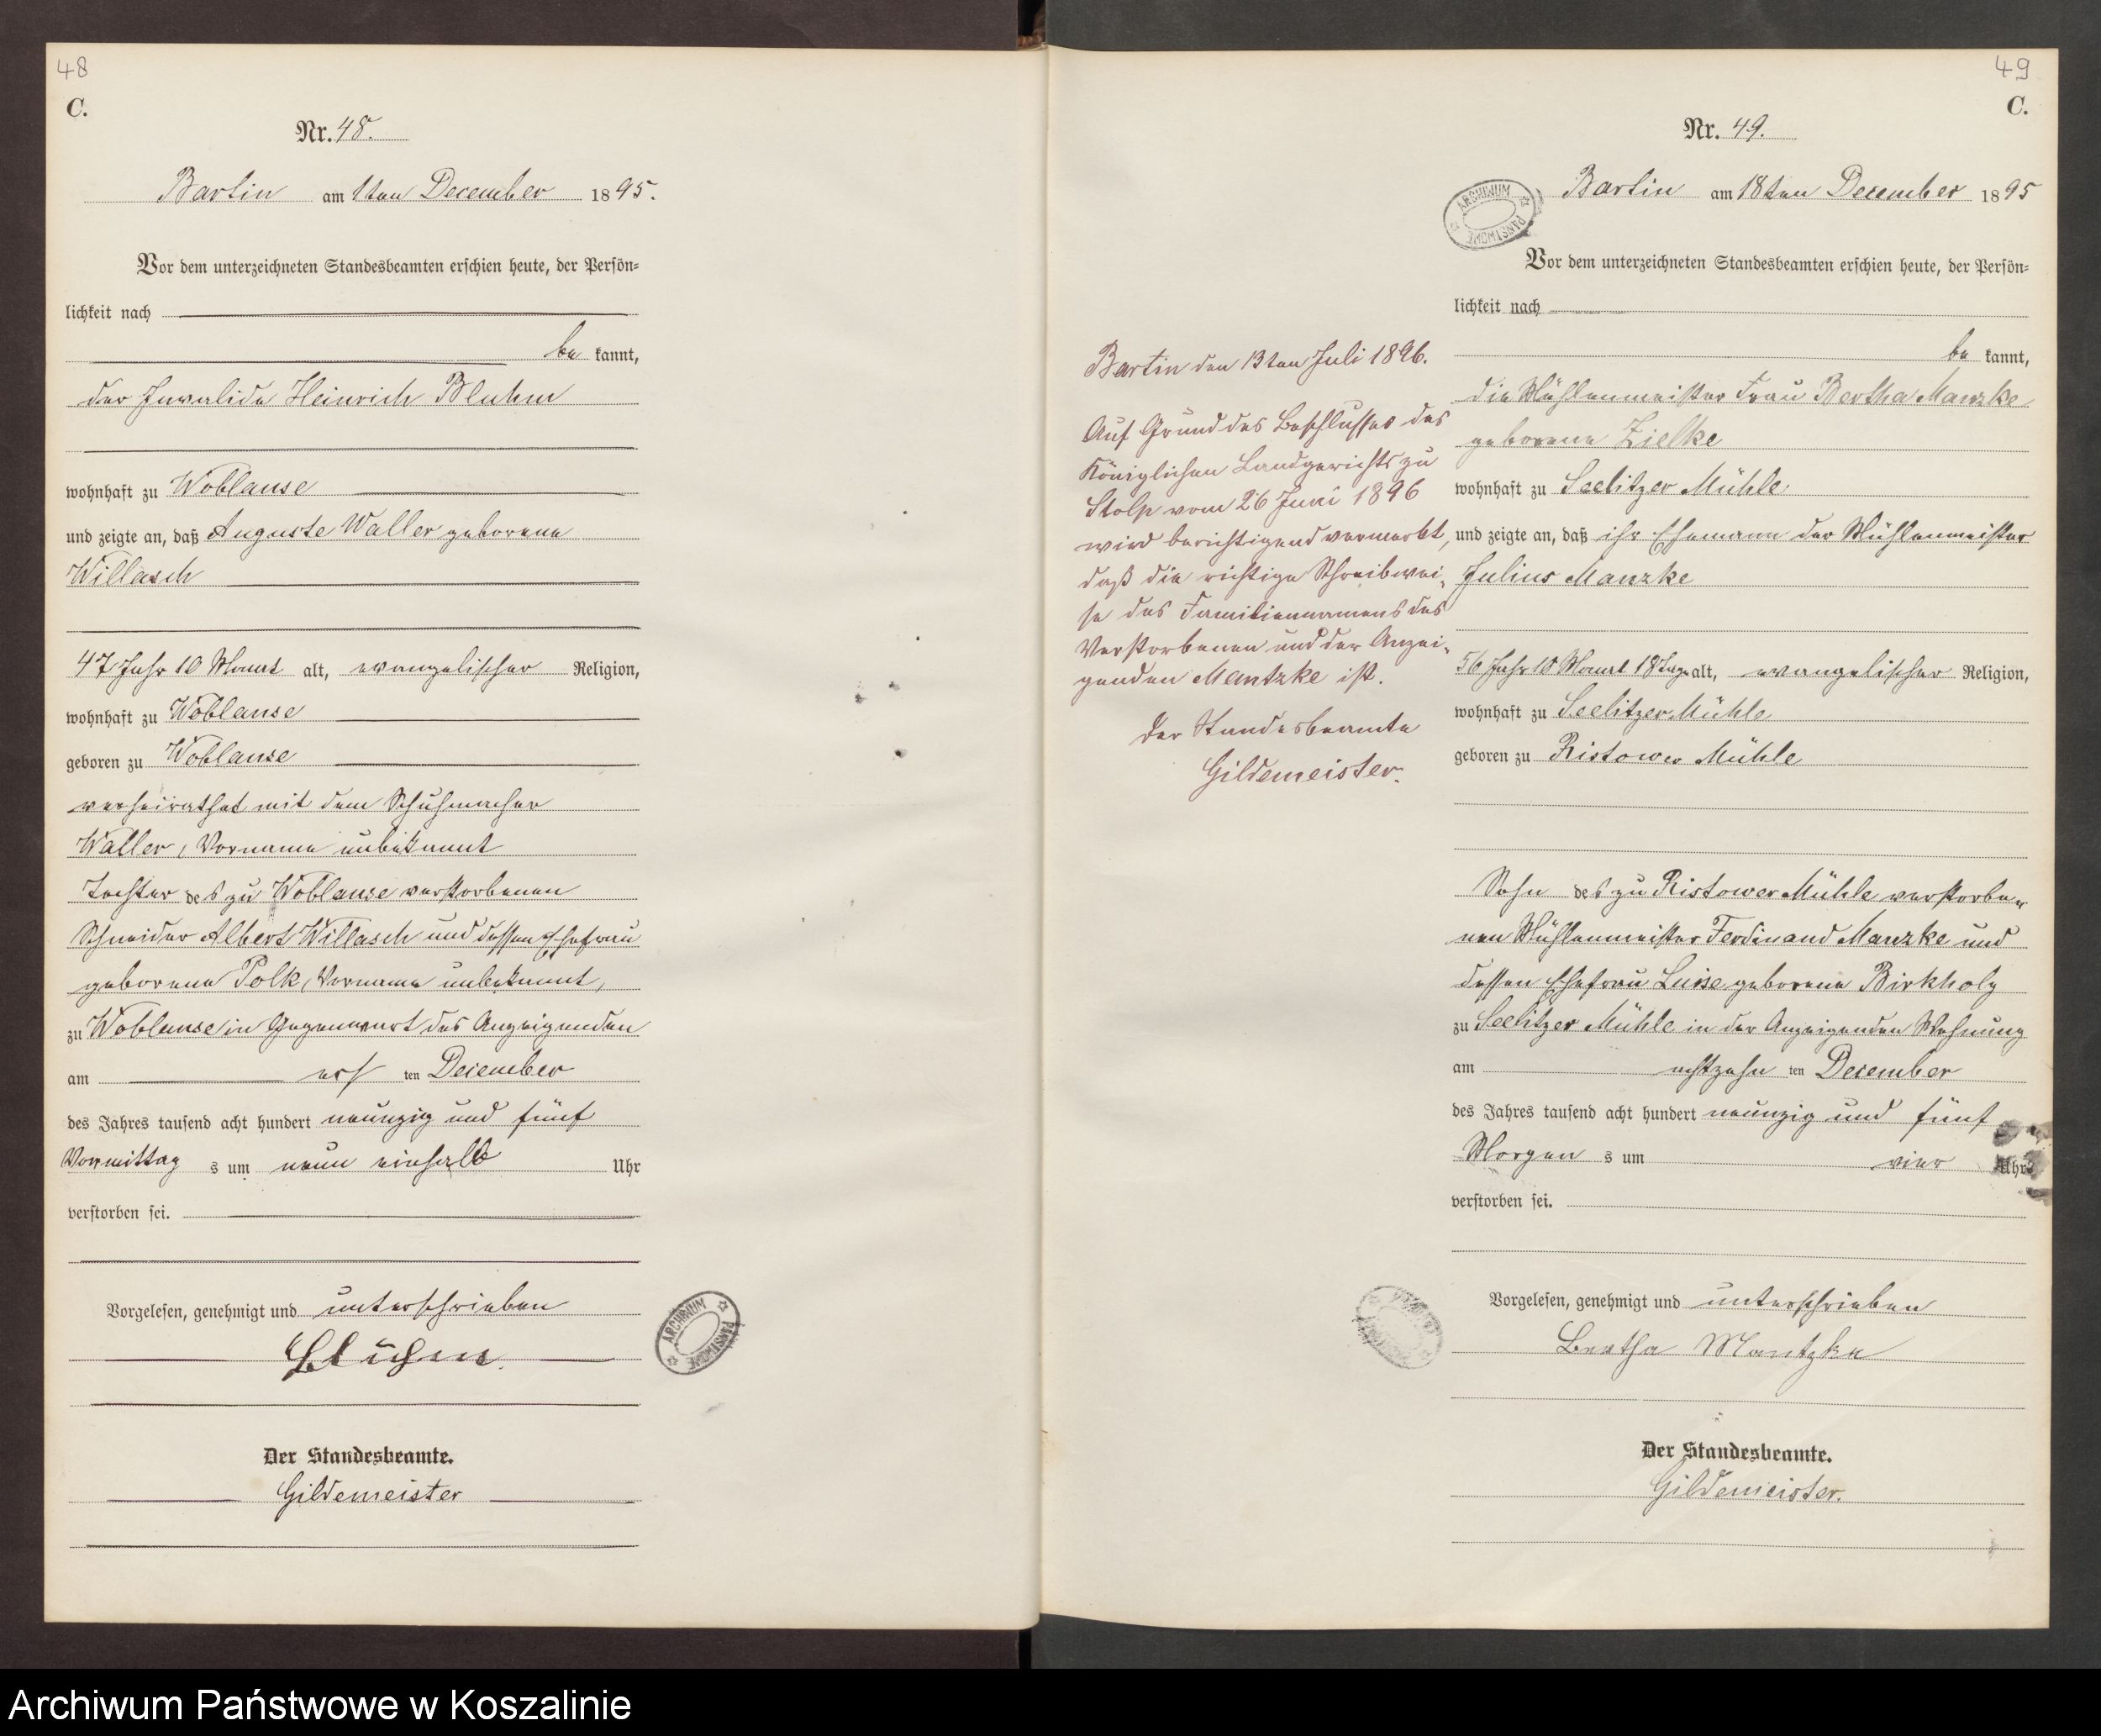 48
C.
Nr. 48.
Bartin am 1ten December 1895.
Vor dem unterzeichneten Standesbeamten erschien heute, der Persön-
lichkeit nach
be kannt,
der Invalide Heinrich Bluhm
wohnhaft zu Woblanse
und zeigte an, daß Auguste Waller geborene
Willasch
47 Jahr 10 Monat alt, evangelischer Religion,
wohnhaft zu Woblanse
geboren zu Woblanse
verheirathet mit dem Schuhmacher
Waller, Vorname unbekannt
Tochter des zu Woblanse verstorbenen
Schneider Albert Willasch und dessen Ehefrau
geborene Polk, Vorname unbekannt,
zu Woblanse in Gegenwart des Anzeigenden
am ers ten December
des Jahres tausend acht hundert neunzig und fünf
Vormittag s um neun einhalb Uhr
verstorben sei.
Vorgelesen, genehmigt und unterschrieben
Blühm.
Der Standesbeamte.
Gildemeister
ARCHIWUM PAŃSTWOWE
49
C.
Nr. 49.
Bartin am 18ten December 1895
ARCHIWUM PAŃSTWOWE
Vor dem unterzeichneten Standesbeamten erschien heute, der Persön-
lichkeit nach
be kannt,
die Mühlenmeister Frau Bertha Manzke
geborene Zielke
wohnhaft zu Seelitzer Mühle
und zeigte an, daß ihr Ehemann der Mühlenmeister
Julius Manzke
56 Jahr 10 Monat 18 Tage alt, evangelischer Religion,
wohnhaft zu Seelitzer Mühle
geboren zu Ristower Mühle
Sohn des zu Ristower Mühle verstorbe-
nen Mühlenmeister Ferdinand Manzke und
dessen Ehefrau Luise geborene Birkholz
zu Seelitzer Mühle in der Anzeigenden Wohnung
am achtzehn ten December
des Jahres tausend acht hundert neunzig und fünf
Morgen s um vier Uhr
verstorben sei.
Vorgelesen, genehmigt und unterschrieben
Bertha Mantzke
Der Standesbeamte.
Gildemeister.
Bartin den 13ten Juli 1896.
Auf Grund des Beschlusses des
Königlichen Landgerichts zu
Stolp vom 26 Juni 1896
wird berichtigend vermerkt,
daß die richtige Schreibwei-
se des Familiennamens des
Verstorbenen und der Anzei-
genden Mantzke ist.
Der Standesbeamte
Gildemeister.
Archiwum Państwowe w Koszalinie